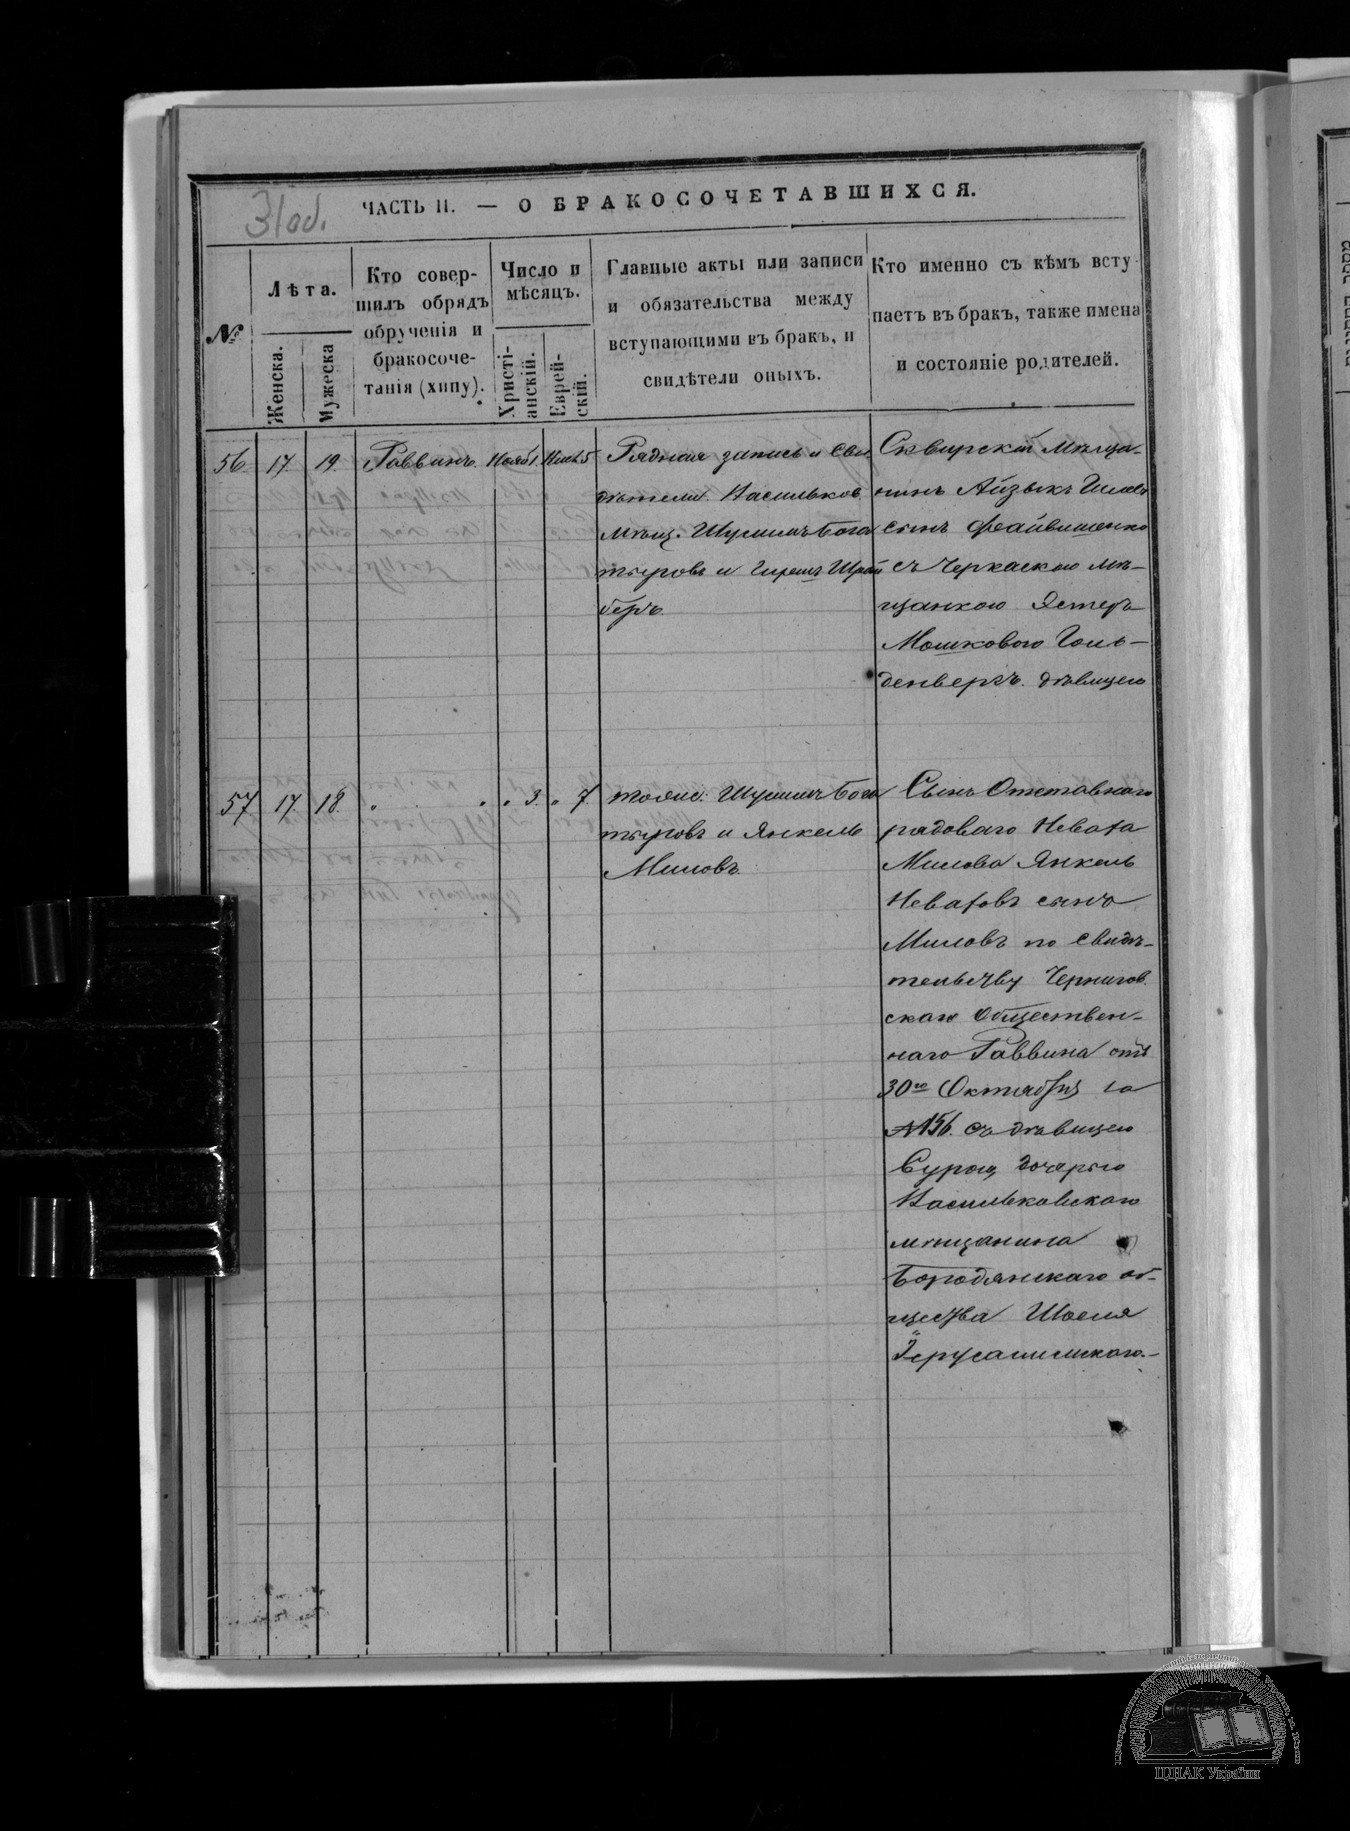 31об.
ЧАСТЬ II. — О БРАКОСОЧЕТАВШИХСЯ.
№
Лѣта.
Женска.
Мужеска
Кто совер-
шилъ обрядъ
обрученія и
бракосоче-
танія (хипу).
Число и
мѣсяцъ.
Христі-
анскій.
Еврей-
скій.
Главные акты или записи
и обязательства между
вступающими въ бракъ, и
свидѣтели оныхъ.
Кто именно съ кѣмъ всту
паетъ въ бракъ, также имена
и состояніе родителей.
56 17 19 Раввинъ Нояб 1 5
Рядная запись и Сви
дѣтели Васильков.
Мѣщ. Шулимъ Бога
тыровъ и Гершъ Шрай
беръ
Сквирскій Мѣща-
нинъ Айзыкъ
сынъ Файвишенко
съ Черкаскою мѣ-
щанкою Эстеръ
Мошковою Голь-
денбергъ дѣвицею
57 17 18 " " " 3 " 7
тоже. Шулимъ Бога
тыровъ и Янкель
Миловъ
Сынъ Отставного
рядоваго Неваха
Милова Янкель
Неваховъ сынъ
Миловъ по свидѣ-
тельству Чернигов.
скаго Обществен-
наго Раввина отъ
30го Октября за
№156. съ дѣвицею
Сурою, дочерью
Васильковскаго
мѣщанина
Бородянскаго об-
щества Шоеля
Іерусалимскаго.-
ЦДІАК України